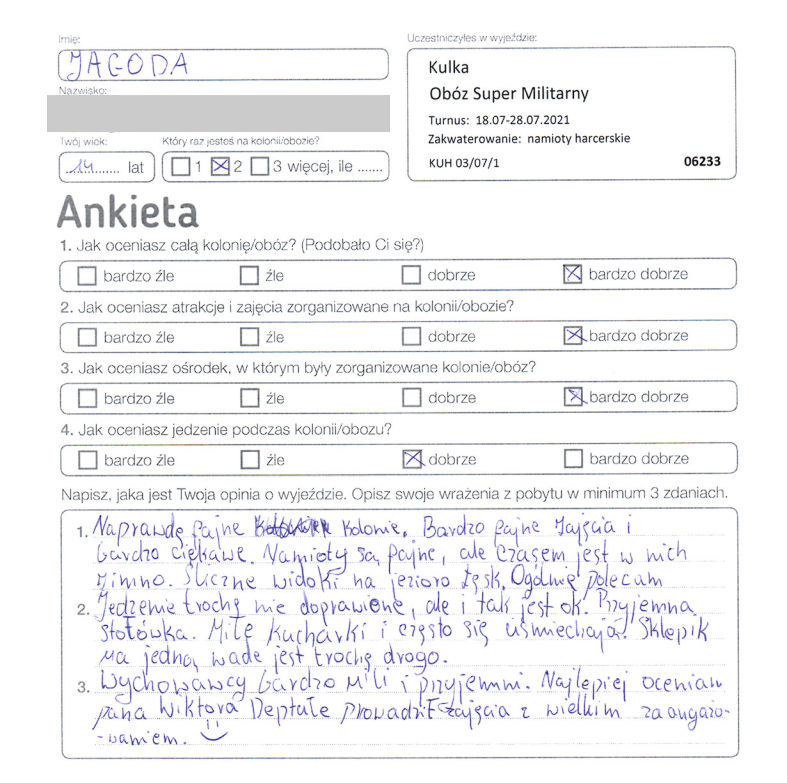 Imię:
JAGODA
Nazwisko:
Twój wiek:
14 lat
Który raz jesteś na kolonii/obozie?
1 2 3 więcej, ile .......
Uczestniczyłeś w wyjeździe:
Kulka
Obóz Super Militarny
Turnus: 18.07-28.07.2021
Zakwaterowanie: namioty harcerskie
KUH 03/07/1 06233
Ankieta
1. Jak oceniasz całą kolonię/obóz? (Podobało Ci się?)
bardzo źle źle dobrze bardzo dobrze
2. Jak oceniasz atrakcje i zajęcia zorganizowane na kolonii/obozie?
bardzo źle źle dobrze bardzo dobrze
3. Jak oceniasz ośrodek, w którym były zorganizowane kolonie/obóz?
bardzo źle źle dobrze bardzo dobrze
4. Jak oceniasz jedzenie podczas kolonii/obozu?
bardzo źle źle dobrze bardzo dobrze
Napisz, jaka jest Twoja opinia o wyjeździe. Opisz swoje wrażenia z pobytu w minimum 3 zdaniach.
1. Naprawdę fajne kolonie. Bardzo fajne zajęcia i
bardzo ciękawe. Namioty są fajne, ale czasem jest w nich
zimno. Śliczne widoki na jezioro Łęsk. Ogólnie polecam
2. Jedzenie trochę nie doprawione, ale i tak jest ok. Przyjemna
stołówka. Miłe kucharki i często się uśmiechają. Sklepik
ma jedną wadę jest trochę drogo.
3. Wychowawcy bardzo mili i przyjemni. Najlepiej oceniam
pana Wiktora Deptułe prowadził zajęcia z wielkim zaangażo-
-waniem.